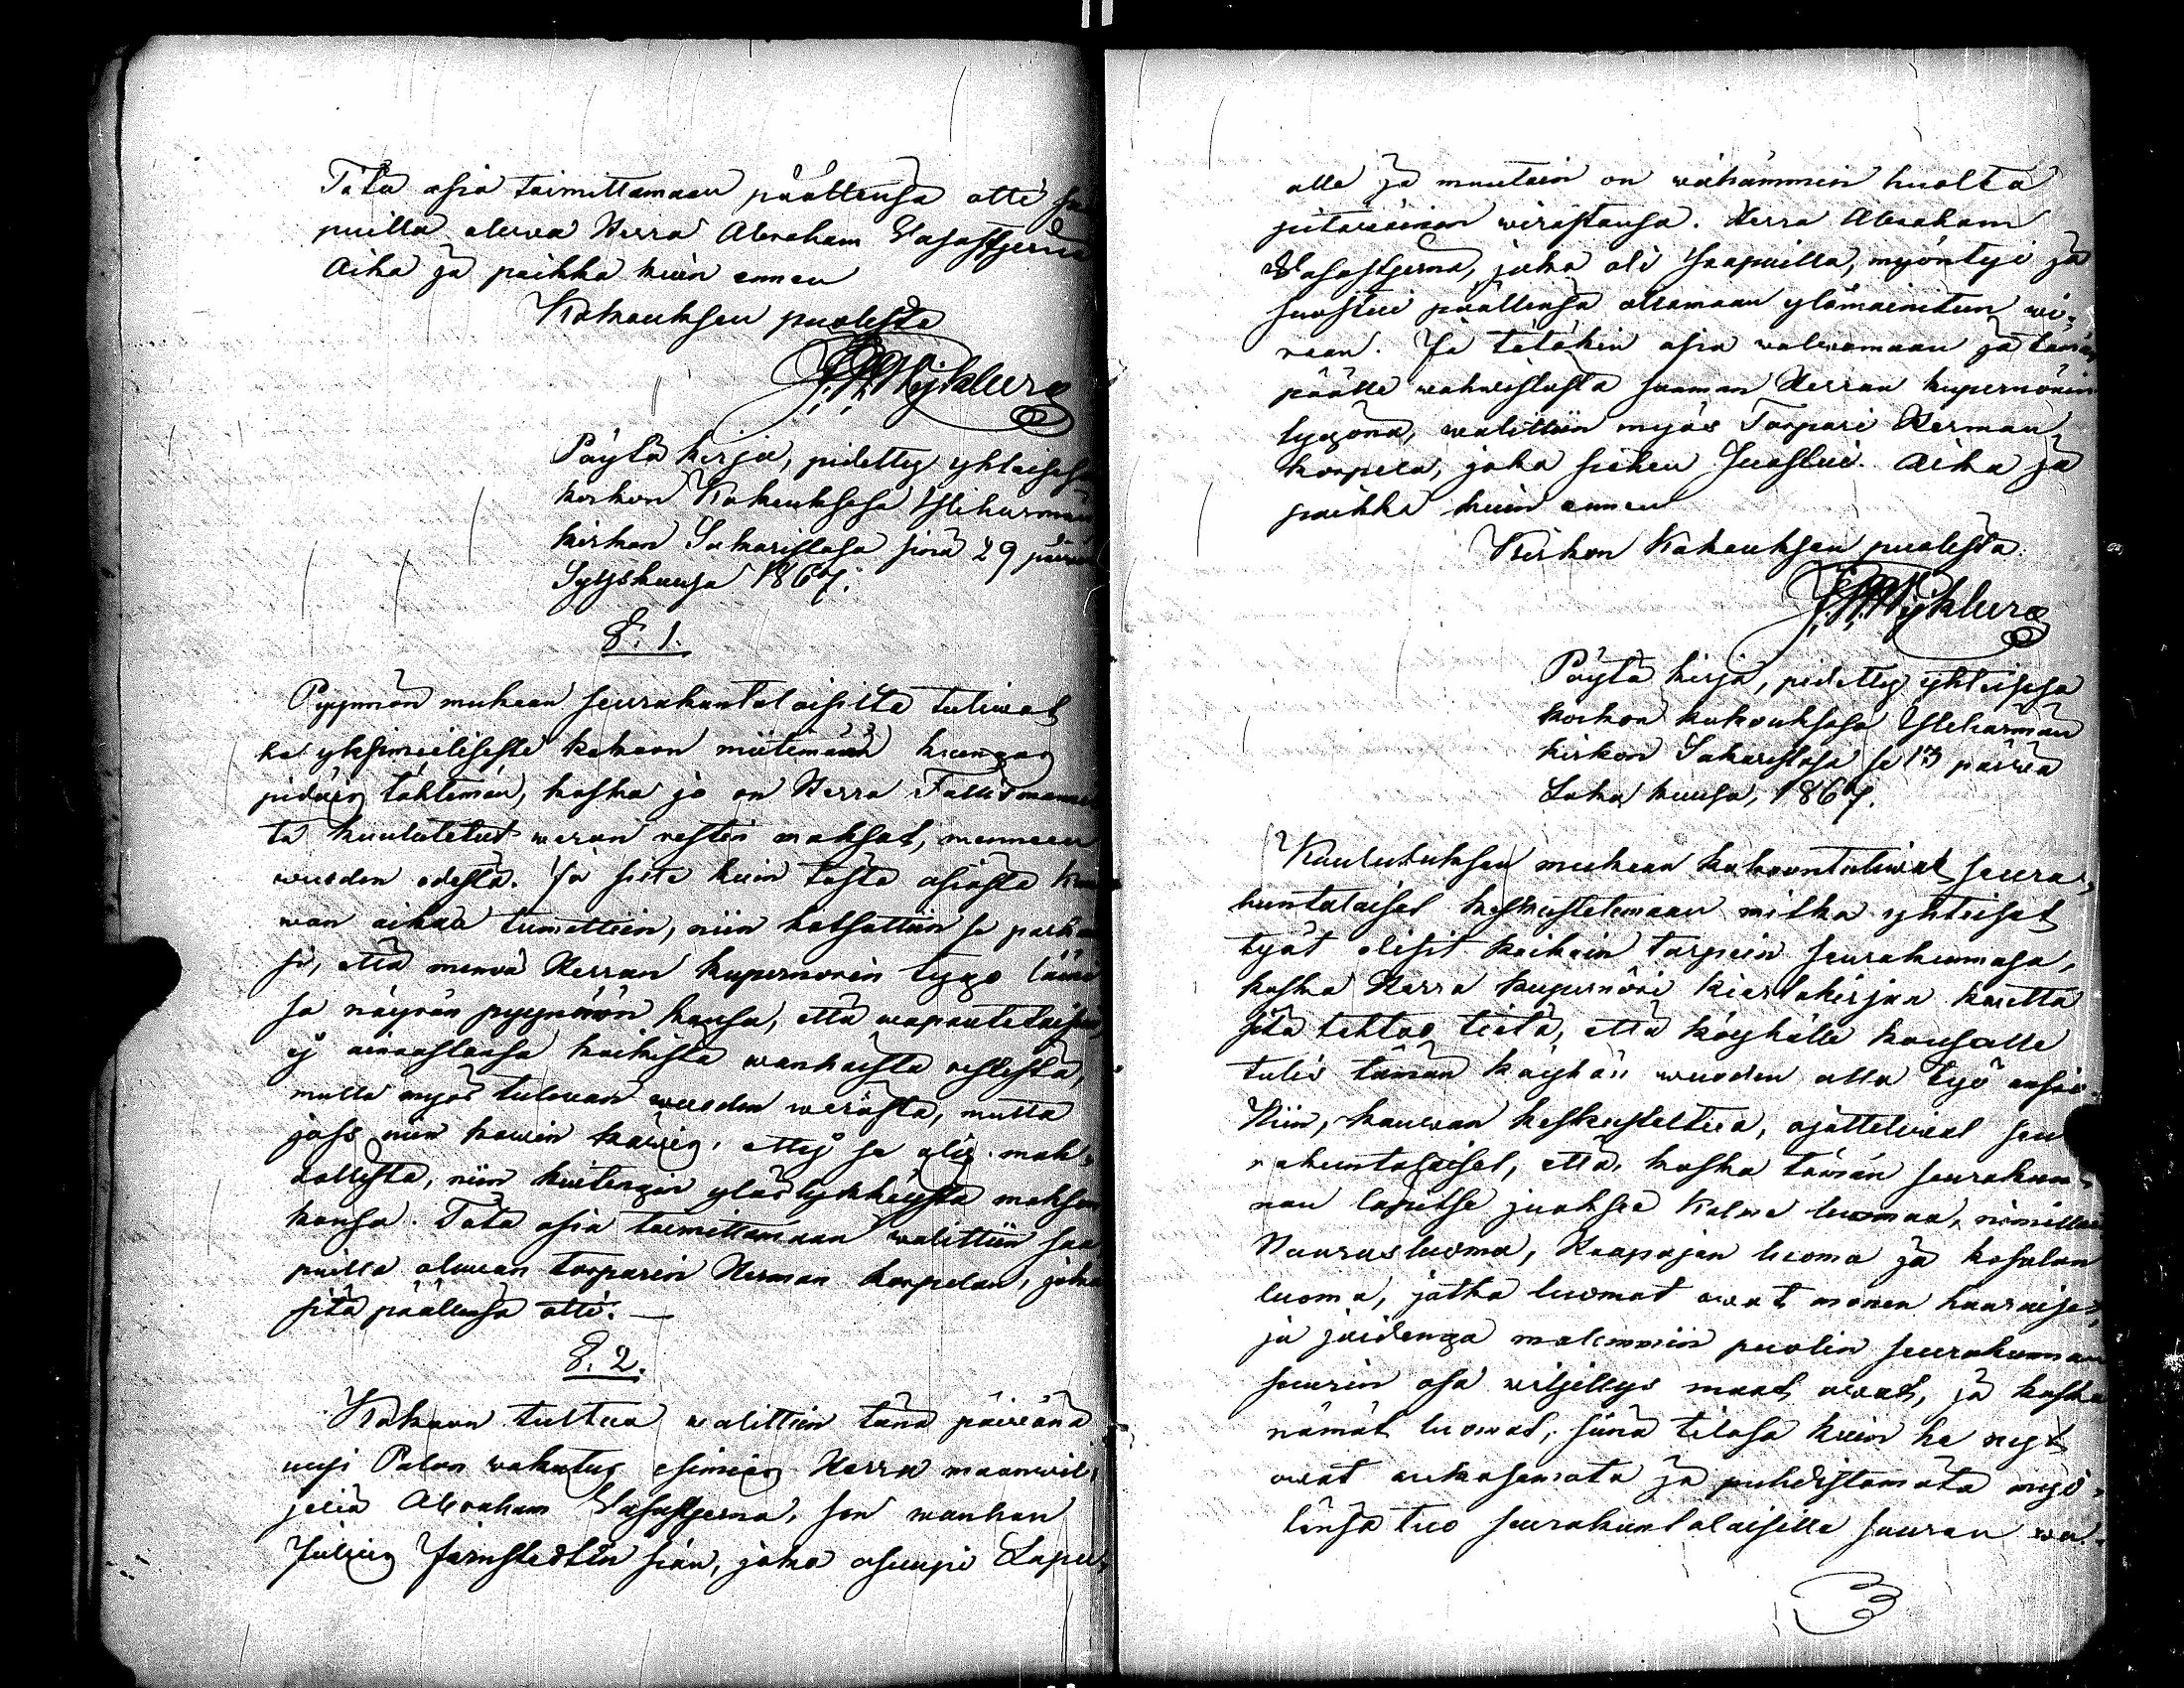 Tätä asia toimittamaan päällensä otti saa
puilla olewa Herra Abraham Wasastjerna
Aika ja paikka kuin ennen
Kokouksen puolesta
J. W. Nykberg
Pöytä kirja, pidetty yhteisesä
kirkon Kokouksesa Ylihärmän
kirkon Sakaristosa sinä 29 päiwä
Syyskuusa 1867.
§. 1.
Pyynnön mukaan seurakuntalaisilta tuliwat
he yksimielisesti kokoon miettimään kuingan
pidäis tähtemän, koska jo on Herra Fallesmanni
ta kuulutetut weron restin maksot, menneen
wuoden edestä. Ja sitte kuin tästä asiasta kau
wan aikaa tuumattiin, niin katsottiin se parhaa
si, että mennä Herran kupernörin tygö lääni
sä nöyrän pyynnön kansa, että wapautetaisiin,
ej ainoastansa kaikista wanhoista restistä,
mutta myös tulewan wuoden werosta, mutta
joss niin kowin käwis, ettej se olis mah¬
dollista, niin kuitengin ylöslykkäystä makson
kansa. Tätä asia toimittamaan walittiin saa
puilla olewan torparin Herman korpelan, joka
sitä päällensä otti. —
§. 2.
Kokoon tultua walittiin tänä päiwänä
uusi Palon wakutus esimies Herra maanwil¬
jeliä Abraham Wasastjerna, sen wanhan
Julius Järnstedtin sian, joka asuupi Lapu¬
alla ja muutoin on wähämmin huolta
pitäwäinen wirastansa. Herra Abraham
Wasastjerna, joka oli saapuilla, myöntyi ja
suostui päällensä ottamaan ylämainitun wi¬
raan. Ja tätäkin asia walwomaan ja tämän
päälle wahwistusta saaman Herran kupernörin
tygönä, walittiin myös Torpari Herman
korpela, joka siihen suostui. Aika ja
paikka kuin ennen
Kirkon Kokouksen puolesta.
J. W. Nykberg
Pöytä kirja, pidetty yhteisesä
kirkon kokouksesa Ylihärmän
kirkon Sakaristosa se 13 päiwä
Loka kuusa, 1867.
Kuulutuksen mukaan kokoontuliwat seura¬
kuntalaiset keskustelemaan mitkä yhteiset
työt olisit kaikein tarpein seurakunnasa,
koska Herra kupernöri kiertokirjan kautta
sitä tahtoo tietä, että köyhälle kansalle
tulis tämän köyhän wuoden alla työ ansio.
Niin, kauwan keskusteltua, ajatteliwat seu
rakuntalaiset, että, koska tämän seurakun¬
nan lapitse juoksee Kolme luomaa, nimittäin
Naarasluoma, Kaapajan luoma ja kosolan
luoma, jotka luomat owat monen haaraiset,
ja joidenga molemmin puolin seurakunnan
suurin osa wiljellys maat owat, ja koska
nämät luomat, siinä tilasa kuin he nyt
owat aukasemata ja puhdistamata myö¬
tänsä tuo seurakuntalaisille suuren wa¬